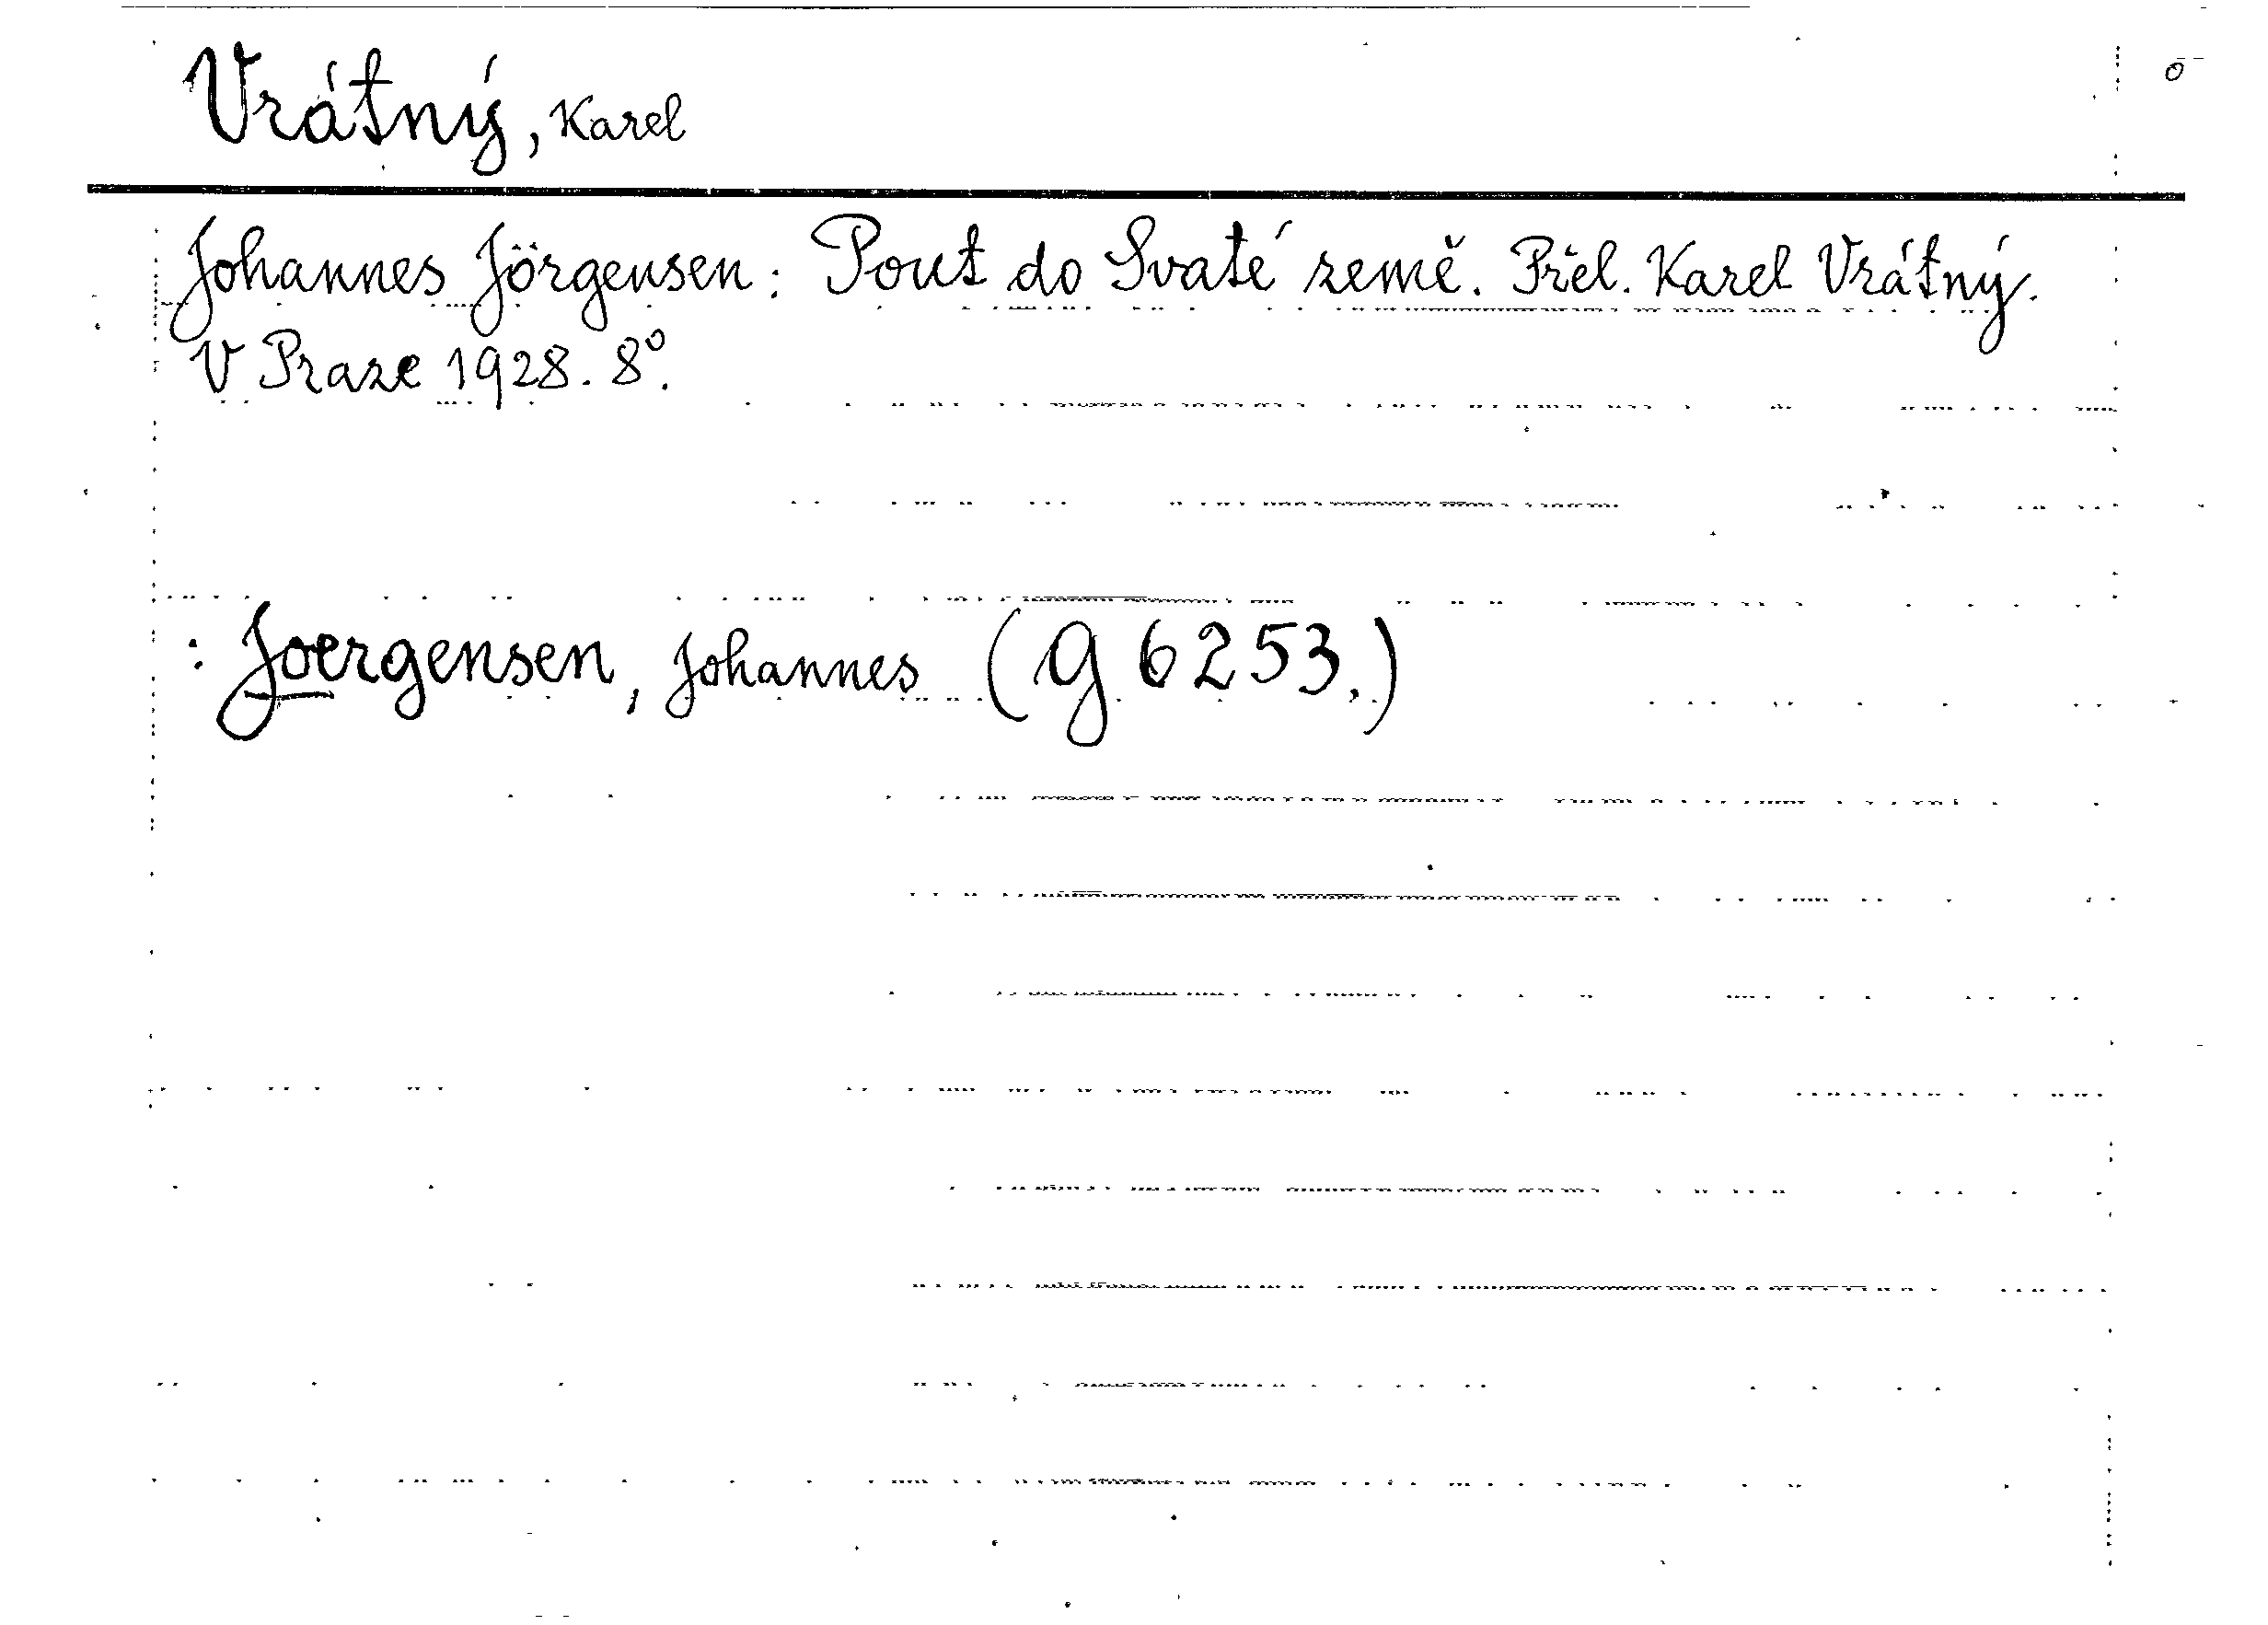 Vrátný, Karel
Johannes Jörgensen: Pout do Svaté země. Přel. Karel Vrátný.
V Praze 1928. 8°.
: Joergensen, Johannes (g 6253.)